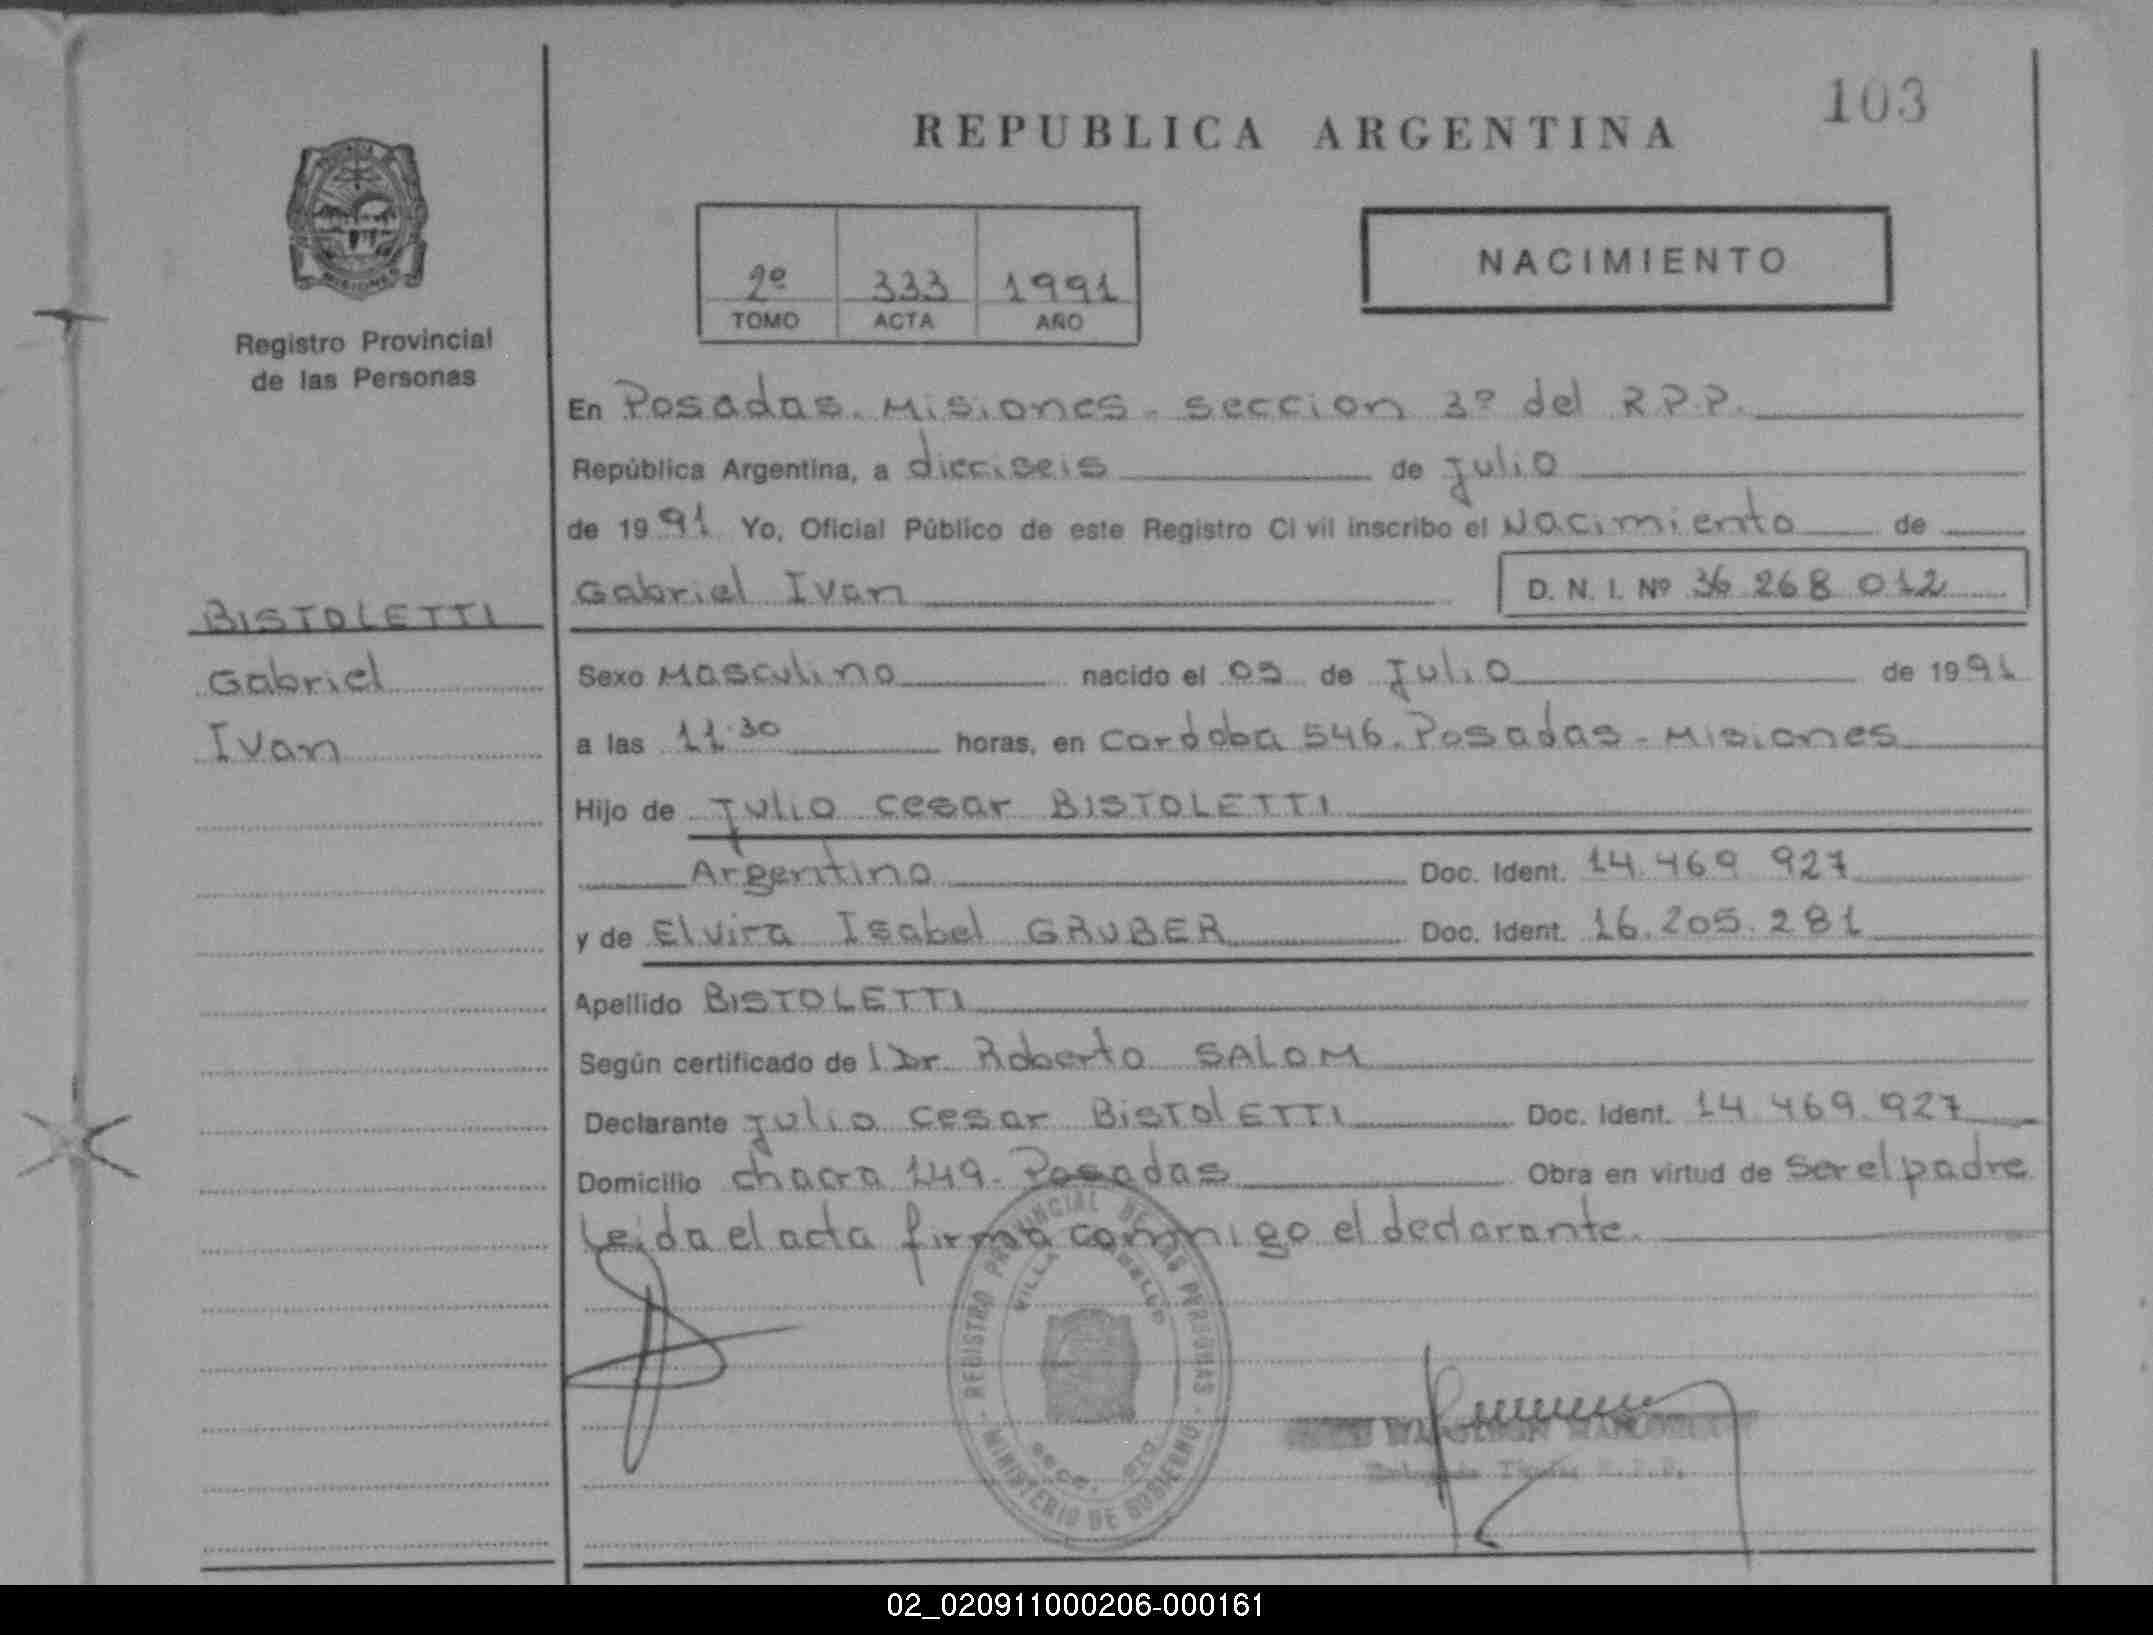 103
REPUBLICA ARGENTINA
NACIMIENTO
2º 333 1991
TOMO ACTA AÑO
Registro Provincial
de las Personas
En Posadas. Misiones - seccion 3º del R.P.P.
República Argentina, a dieciseis de Julio
de 1991 Yo, Oficial Público de este Registro Civil inscribo el Nacimiento de
Gabriel Ivan D. N. I. Nº 36.268.012
BISTOLETTI
Gabriel
Ivan
Sexo Masculino nacido el 05 de Julio de 1991
a las 11.30 horas, en Cordoba 546. Posadas - Misiones
Hijo de Julio Cesar BISTOLETTI
Argentino Doc. Ident. 14.469.927
y de Elvira Isabel GRUBER Doc. Ident. 16.205.281
Apellido BISTOLETTI
Según certificado de l Dr. Roberto SALOM
Declarante Julio Cesar BISTOLETTI Doc. Ident. 14.469.927
Domicilio chacra 149 - Posadas Obra en virtud de ser el padre
Leida el acta firma conmigo el declarante.
REGISTRO PROVINCIAL DE LAS PERSONAS
VILLA
MINISTERIO DE GOBIERNO
02_020911000206-000161